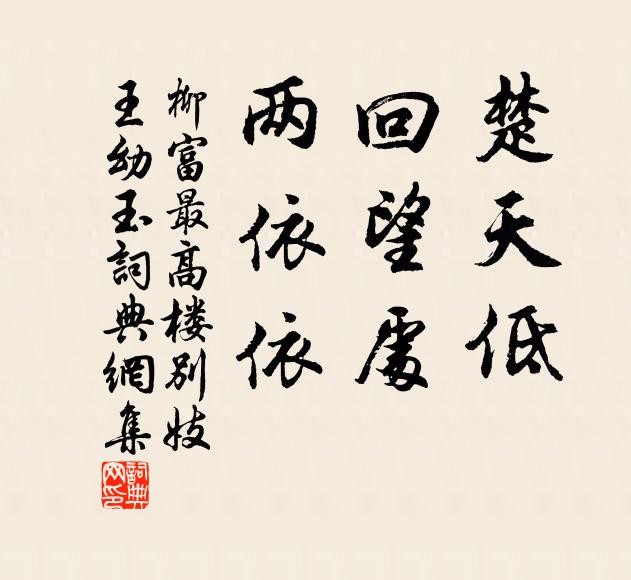 楚天低
回望處
两依依
柳富最高楼别妓
王幼玉詞典網集
詞典网印